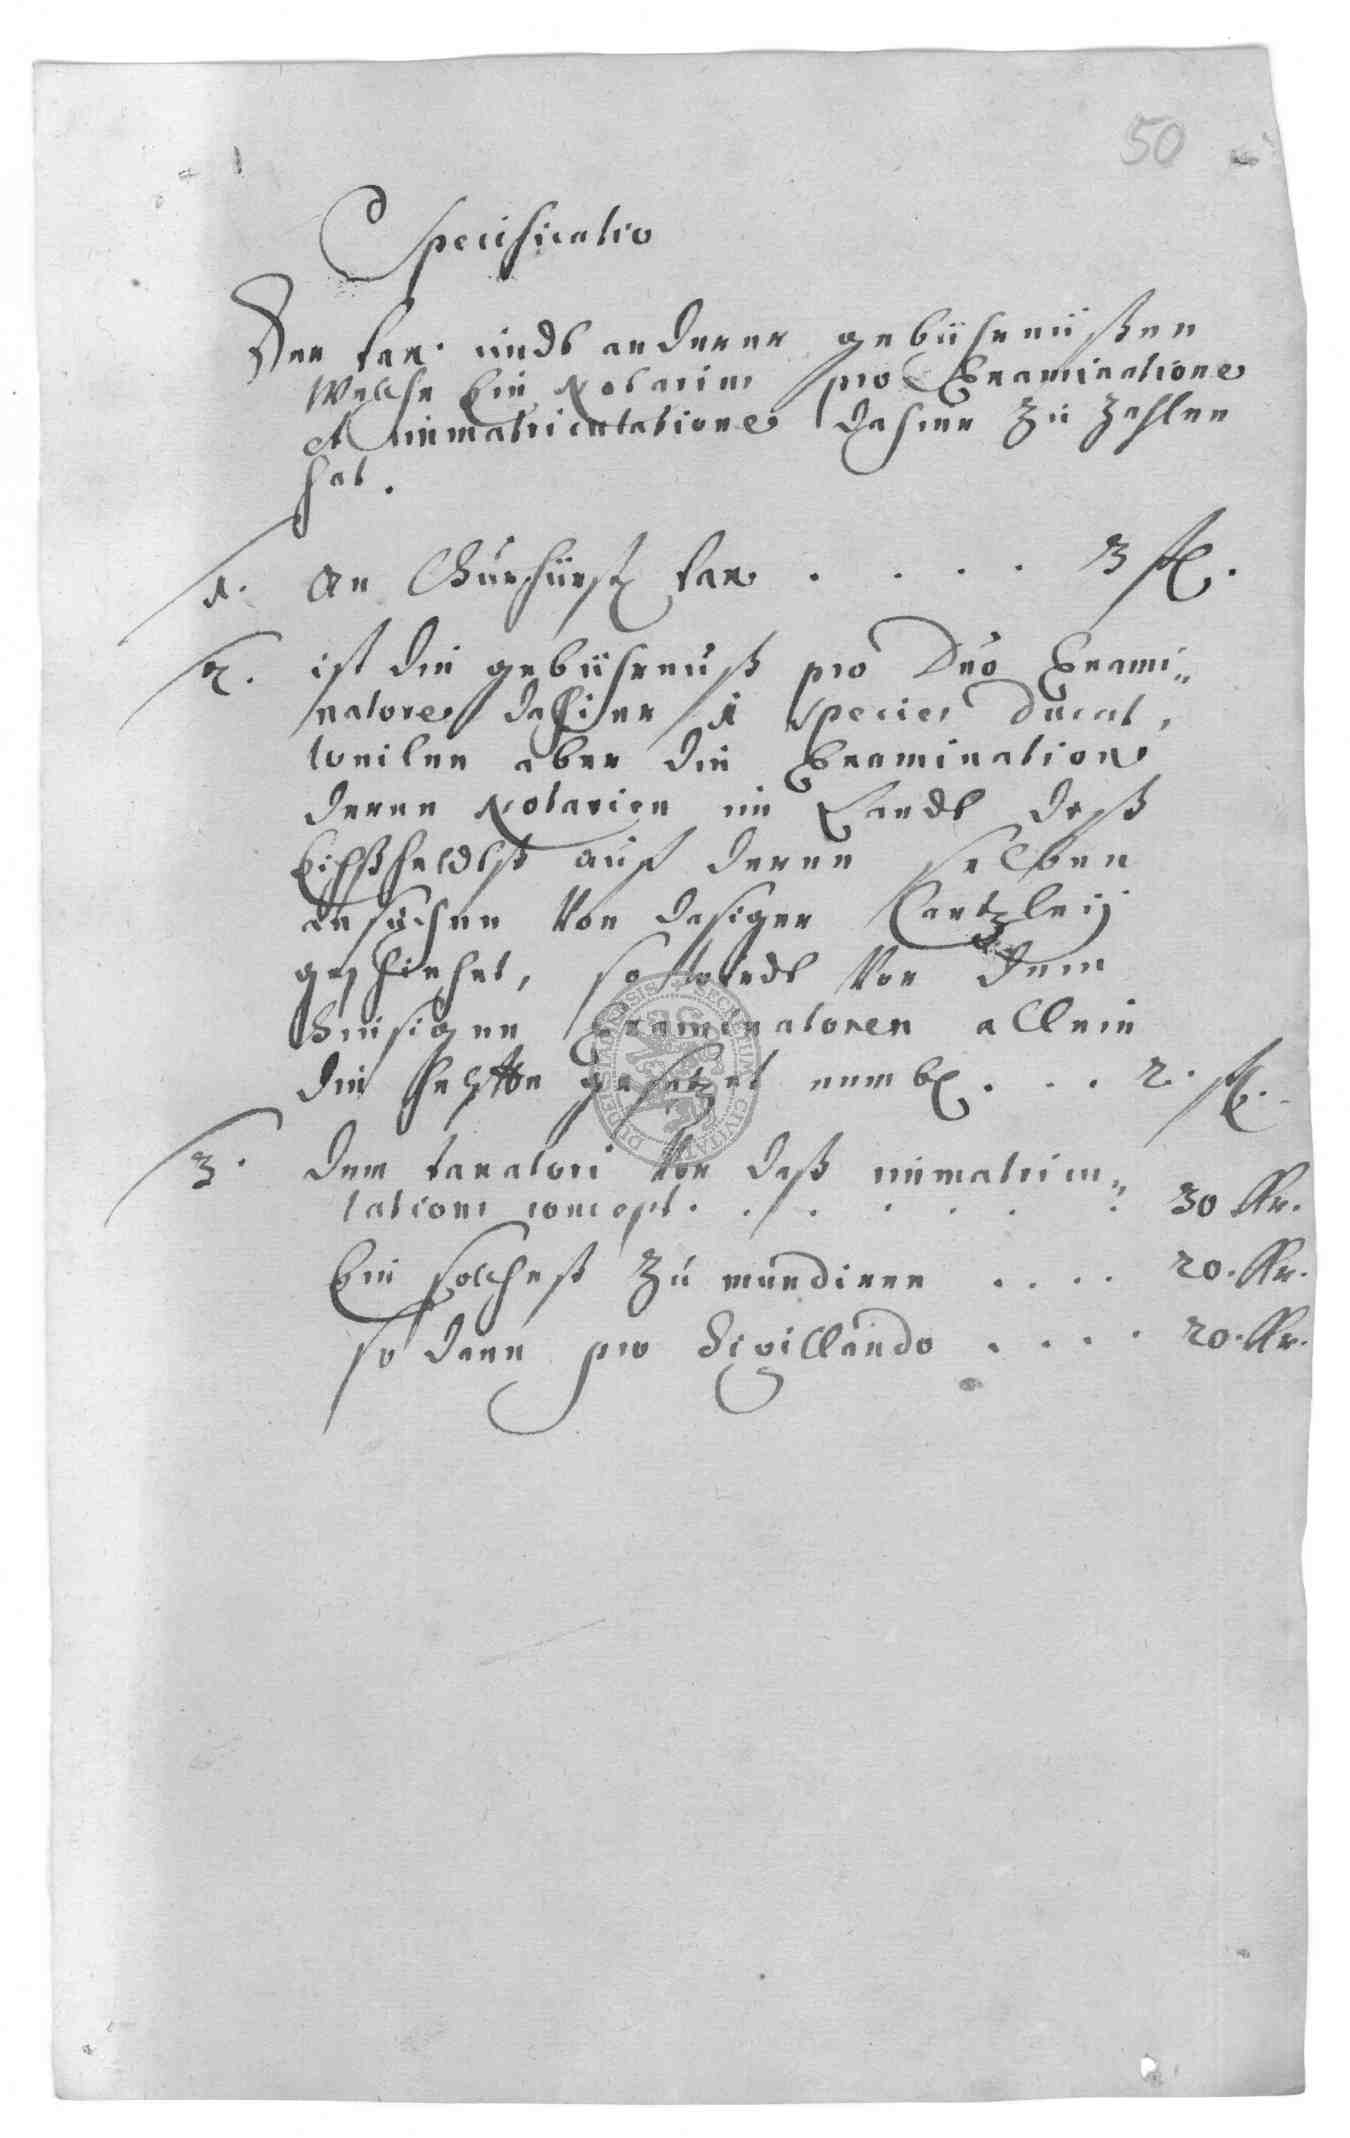 50
Specificatio
Der tax undt anderer gebührnüßen
Welche Ein Notarius pro Examinatione
et immatriculatione dahier zu zahlen
hat.
1. An Churfürstl tax . . . . 3 fl.
2. ist die gebührnuß pro Duo Exami„
natore dahier 1 Species Ducat,
weilen aber die Examination
deren Notarien im Landt deß
Eichßfeldtß auf deren selben
ansuchen Von dasiger Cantzleij
geschiehet, so wirdt Vor dem
hiesigen Examinatoren allein
die helffte gesetzet nembl. . . 2. fl.
3. dem taxatori Vor daß immatricu„
lations concept. . . . . . . 30 Kr.
Ein solcheß zu mundieren . . . . 20. Kr.
so dann pro Sigillando . . . . 20. Kr.
SECRETUM CIVITATIS